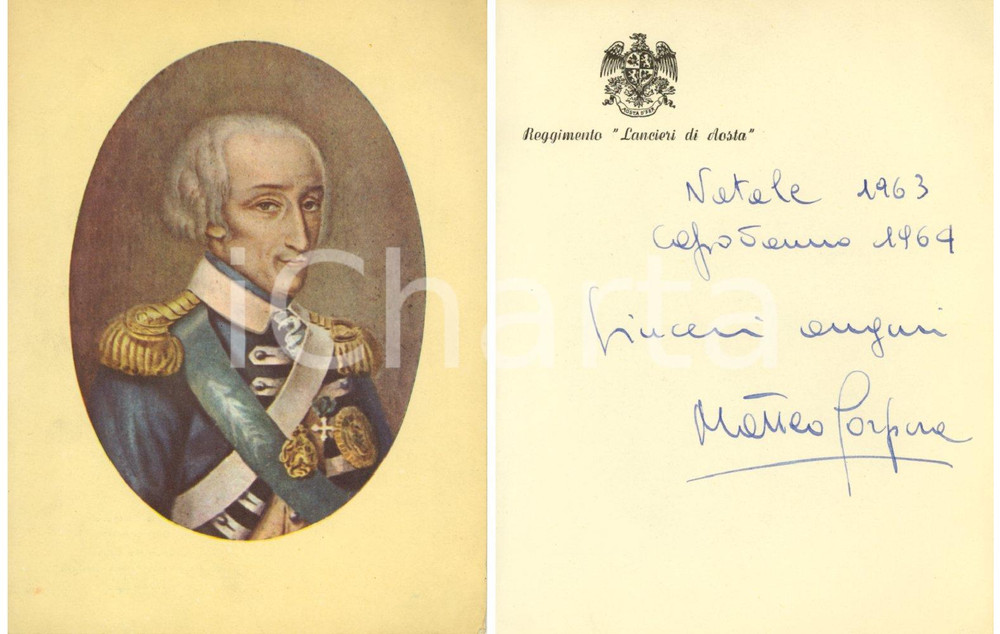 iCharta
AOSTA LA VEJA
Reggimento "Lancieri di Aosta"
Natale 1963
Capodanno 1964
Sinceri auguri
Matteo